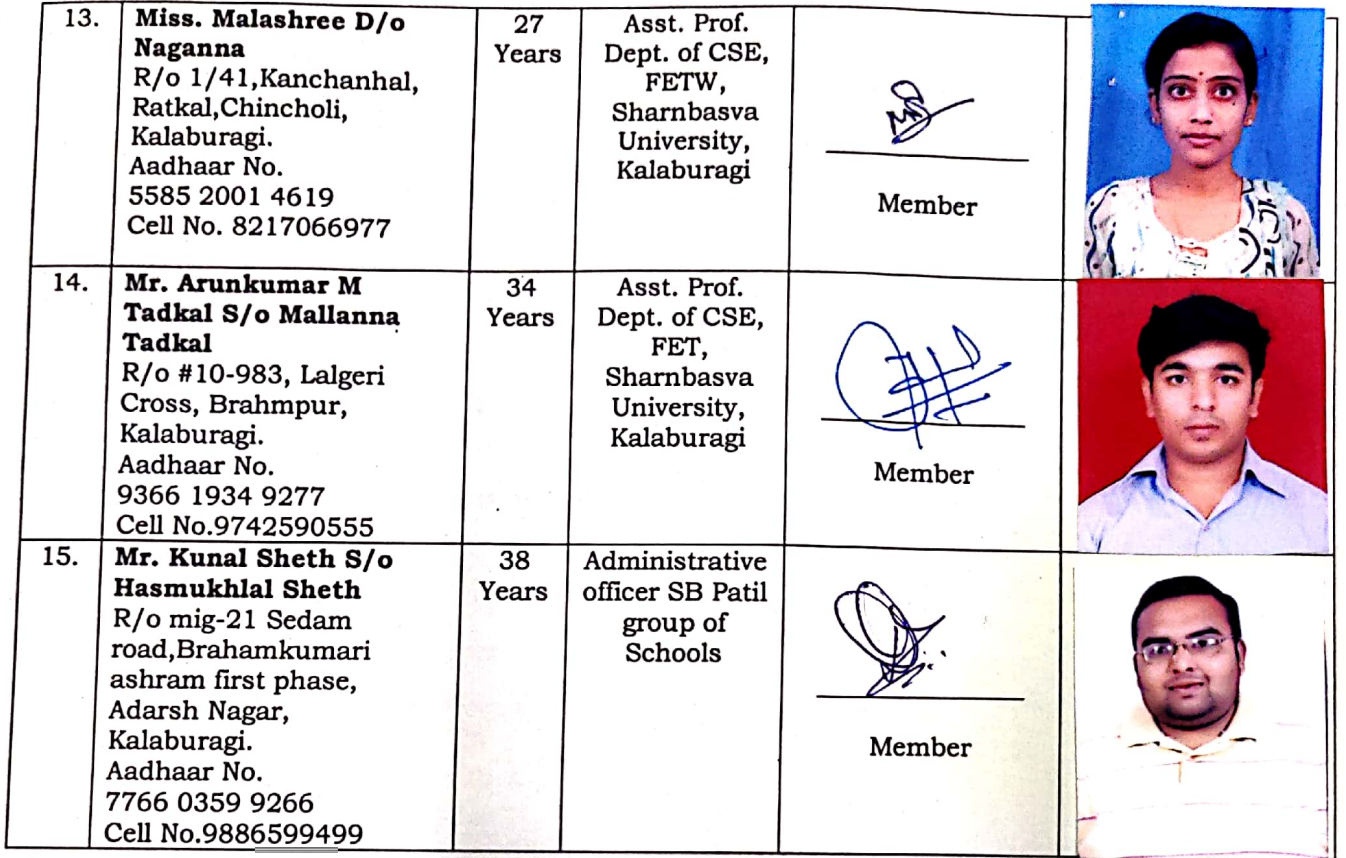 13.
Miss. Malashree D/o
Naganna
R/o 1/41,Kanchanhal,
Ratkal,Chincholi,
Kalaburagi.
Aadhaar No.
5585 2001 4619
Cell No. 8217066977
27
Years
Asst. Prof.
Dept. of CSE,
FETW,
Sharnbasva
University,
Kalaburagi
Member
14.
Mr. Arunkumar M
Tadkal S/o Mallanna
Tadkal
R/o #10-983, Lalgeri
Cross, Brahmpur,
Kalaburagi.
Aadhaar No.
9366 1934 9277
Cell No.9742590555
34
Years
Asst. Prof.
Dept. of CSE,
FET,
Sharnbasva
University,
Kalaburagi
Member
15.
Mr. Kunal Sheth S/o
Hasmukhlal Sheth
R/o mig-21 Sedam
road,Brahamkumari
ashram first phase,
Adarsh Nagar,
Kalaburagi.
Aadhaar No.
7766 0359 9266
Cell No.9886599499
38
Years
Administrative
officer SB Patil
group of
Schools
Member